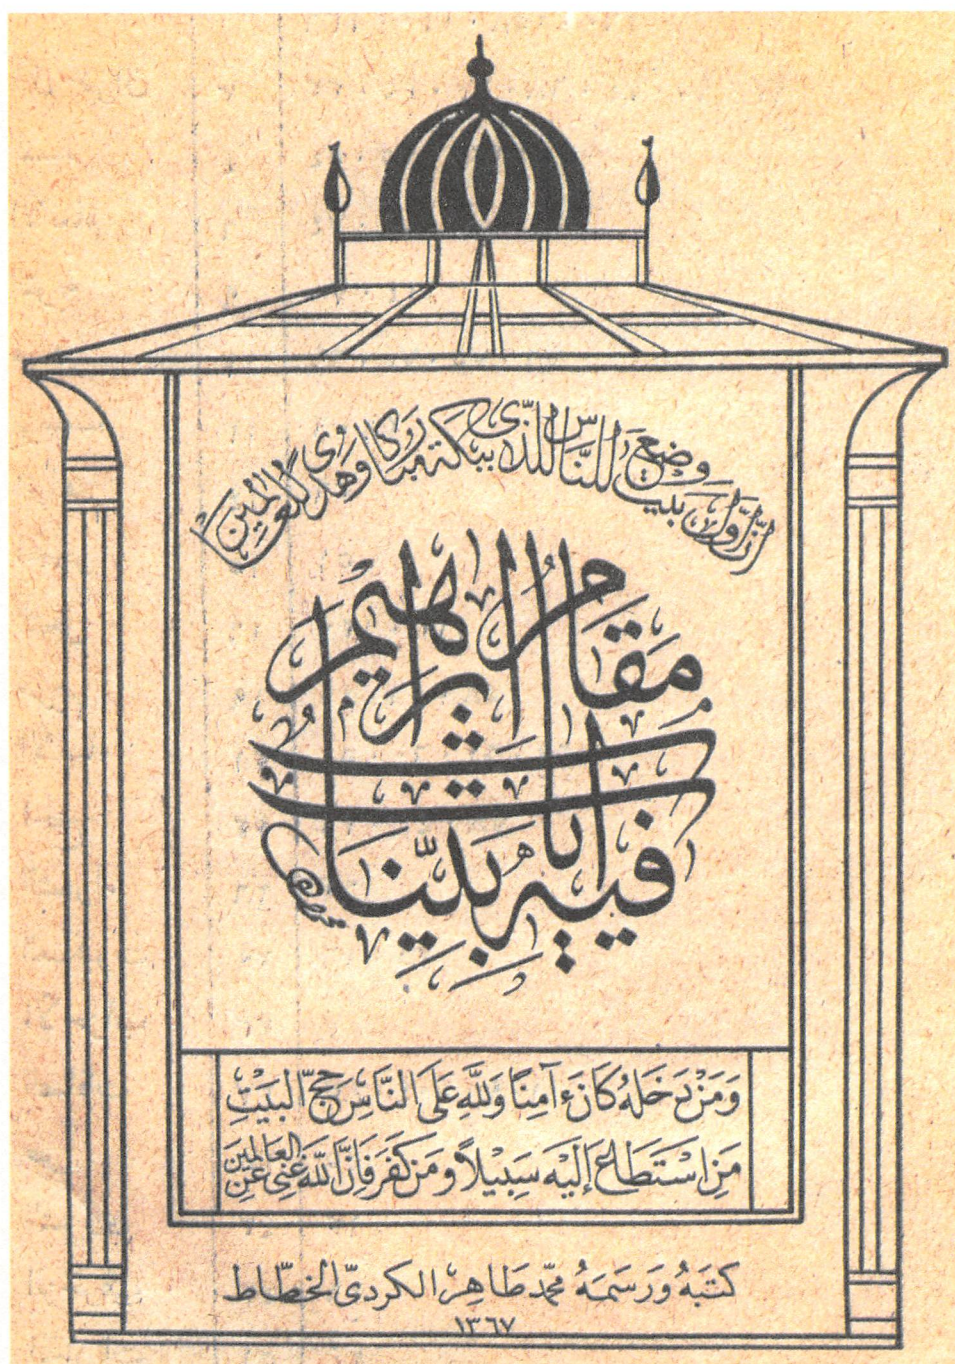 إِنَّ أَوَّلَ بَيْتٍ وُضِعَ لِلنَّاسِ لَلَّذِي بِبَكَّةَ مُبَارَكًا وَهُدًى لِلْعَالَمِينَ
فِيهِ آيَاتٌ بَيِّنَاتٌ
مَقَامُ إِبْرَاهِيمَ
وَمَنْ دَخَلَهُ كَانَ ءَامِنًا وَلِلَّهِ عَلَى النَّاسِ حِجُّ الْبَيْتِ
مَنِ اسْتَطَاعَ إِلَيْهِ سَبِيْلًا وَمَنْ كَفَرَ فَإِنَّ اللَّهَ غَنِيٌّ عَنِ الْعَالَمِينَ
كَتَبَهُ وَرَسَمَهُ مُحَمَّد طَاهِر الكرديّ الخطّاط
١٣٦٧